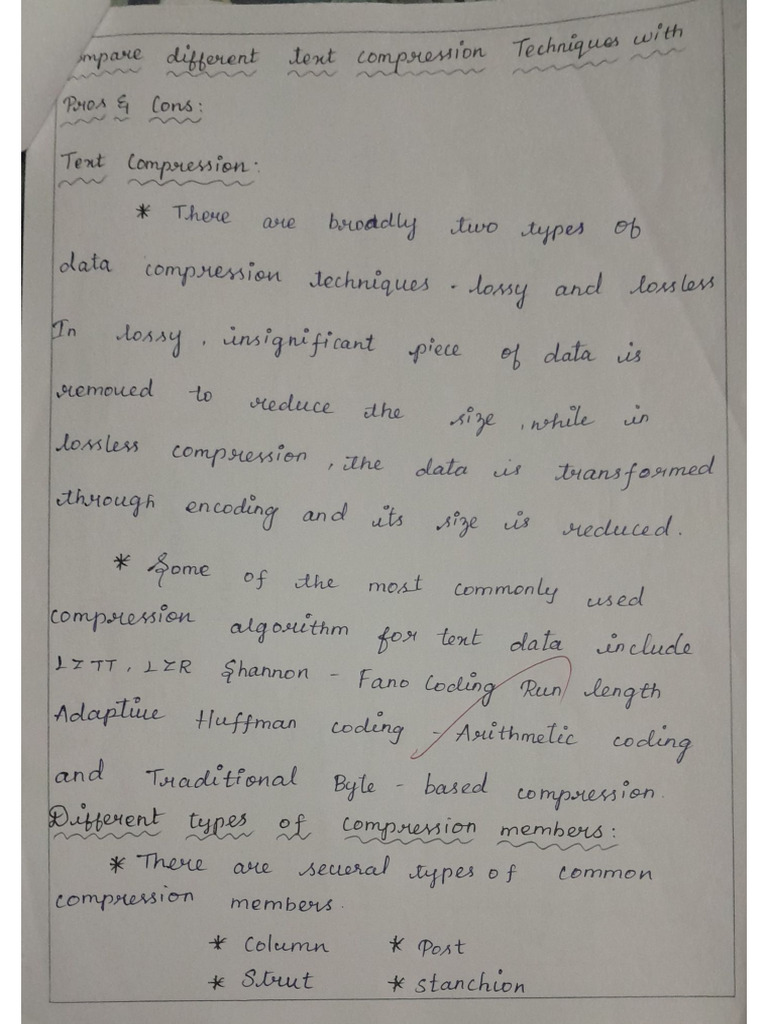 ompare different text compression Techniques with
Pros & Cons:
Text Compression:
* There are broadly two types of
data compression techniques - lossy and lossless
In lossy, insignificant piece of data is
removed to reduce the size, while in
lossless compression, the data is transformed
through encoding and its size is reduced.
* Some of the most commonly used
compression algorithm for text data include
LZTT, LZR Shannon - Fano Coding Run length
Adaptive Huffman coding - Arithmetic coding
and Traditional Byte - based compression.
Different types of compression members:
* There are several types of common
compression members.
* Column * Post
* Strut * Stanchion